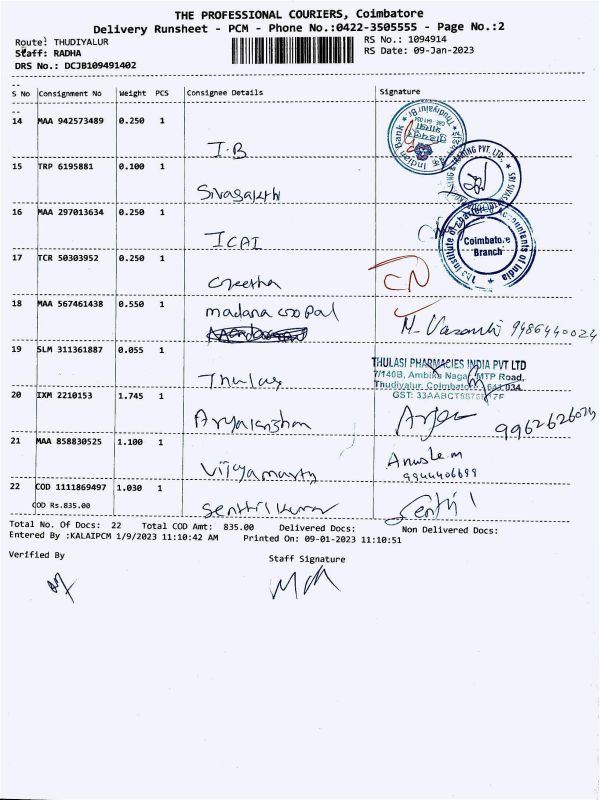 THE PROFESSIONAL COURIERS, Coimbatore
Delivery Runsheet - PCM - Phone No.:0422-3505555 - Page No.:2
Route: THUDIYALUR
RS No.: 1094914
Staff: RADHA
RS Date: 09-Jan-2023
DRS No.: DCJB109491402
S No Consignment No Weight PCS Consignee Details Signature
14 MAA 942573489 0.250 1
I.B
Indian Bank
15 TRP 6195881 0.100 1
Sivasakthi
16 MAA 297013634 0.250 1
ICAI
The Institute of Chartered Accountants of India
Coimbatore
Branch
17 TCR 50303952 0.250 1
Geetha
CN
18 MAA 567461438 0.550 1
madana Gopal
M. Vasanthi 9486440024
19 SLM 311361887 0.055 1
Thulasi
THULASI PHARMACIES INDIA PVT LTD
7/140B, Ambika Nagar, MTP Road,
Thudiyalur, Coimbatore - 641 034
GST: 33AABCT
20 IXM 2210153 1.745 1
21 MAA 858830525 1.100 1
Vijayamurthy
9944406699
22 COD 1111869497 1.030 1
COD Rs.835.00
Senthilkumar
Senthil
Total No. Of Docs: 22 Total COD Amt: 835.00 Delivered Docs: Non Delivered Docs:
Entered By :KALAIPCM 1/9/2023 11:10:42 AM Printed On: 09-01-2023 11:10:51
Verified By
Staff Signature